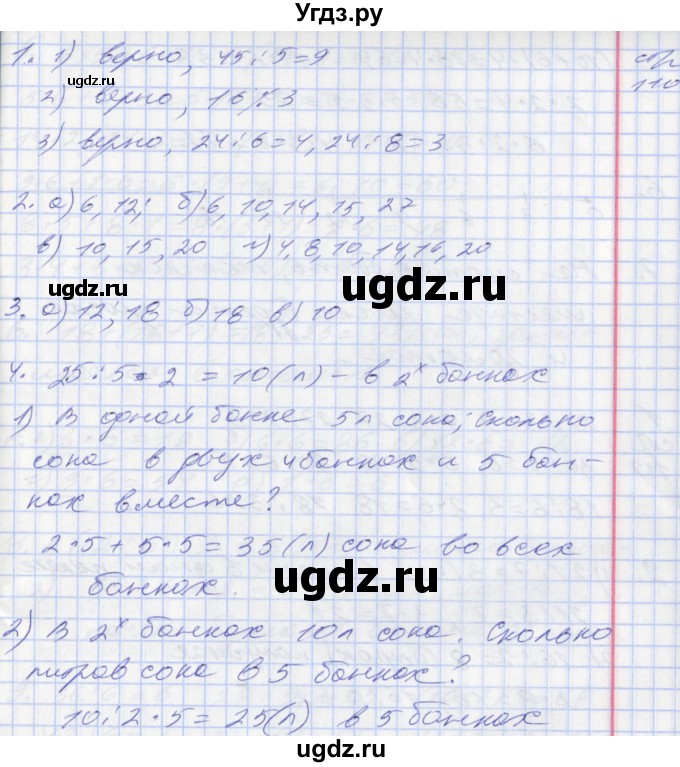 Угдз.ру
стр
110
1. 1) верно, 45:5=9
2) верно, 16 ⁒ 3
3) верно, 24:6=4, 24:8=3
2. а) 6, 12; б) 6, 10, 14, 15, 27
в) 10, 15, 20 г) 4, 8, 10, 14, 16, 20
ugdz.ru
ugdz.ru
3. а) 12; 18 б) 18 в) 10
4. 25:5·2 = 10 (л) – в 2х банках
1) В одной банке 5л сока; Сколько
сока в двух банках и 5 бан-
ках вместе?
2·5+5·5=35(л) сока во всех
банках.
ugdz.ru
ugdz.ru
2) В 2х банках 10л сока. Сколько
литров сока в 5 банках?
10:2·5=25(л) в 5 банках
ugdz.ru